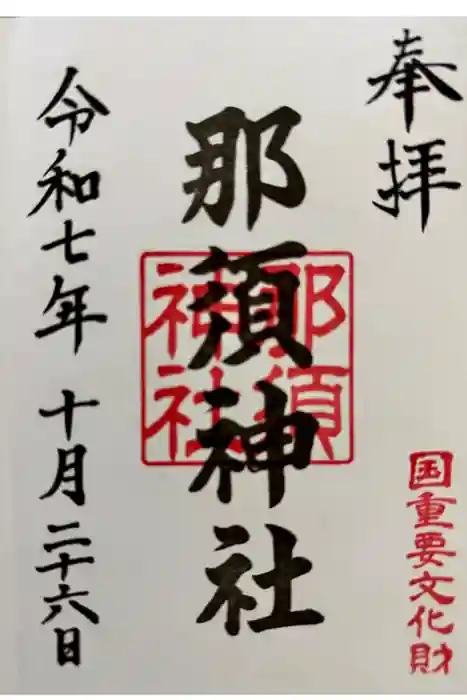 奉拝
国重要文化財
那須神社
那須
神社
令和七年 十月二十六日